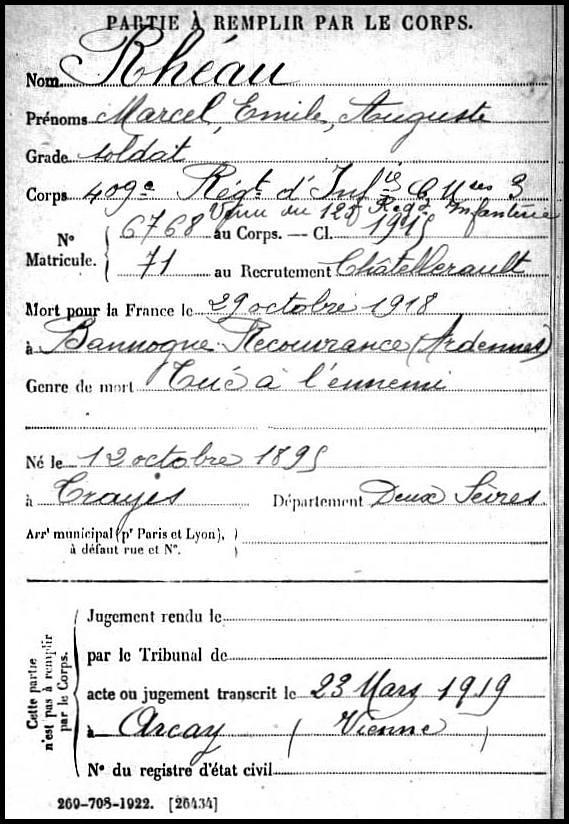 PARTIE À REMPLIR PAR LE CORPS.
Nom Rhéau
Prénoms Marcel, Emile, Auguste
Grade soldat
Corps 409e Régt d'Infie C Mses 3
Venu du 125 Regt Infanterie
N° Matricule. 6768 au Corps. — Cl. 1915
71 au Recrutement Châtellerault
Mort pour la France le 29 octobre 1918
à Bannogne-Recouvrance (Ardennes)
Genre de mort Tué à l'ennemi
Né le 12 octobre 1895
à Trayes Département Deux Sèvres
Arrt municipal (pr Paris et Lyon),
à défaut rue et N°.
Cette partie n'est pas à remplir par le Corps.
Jugement rendu le
par le Tribunal de
acte ou jugement transcrit le 23 Mars 1919
à Arcay (Vienne)
N° du registre d'état civil
269-708-1922. [26434]